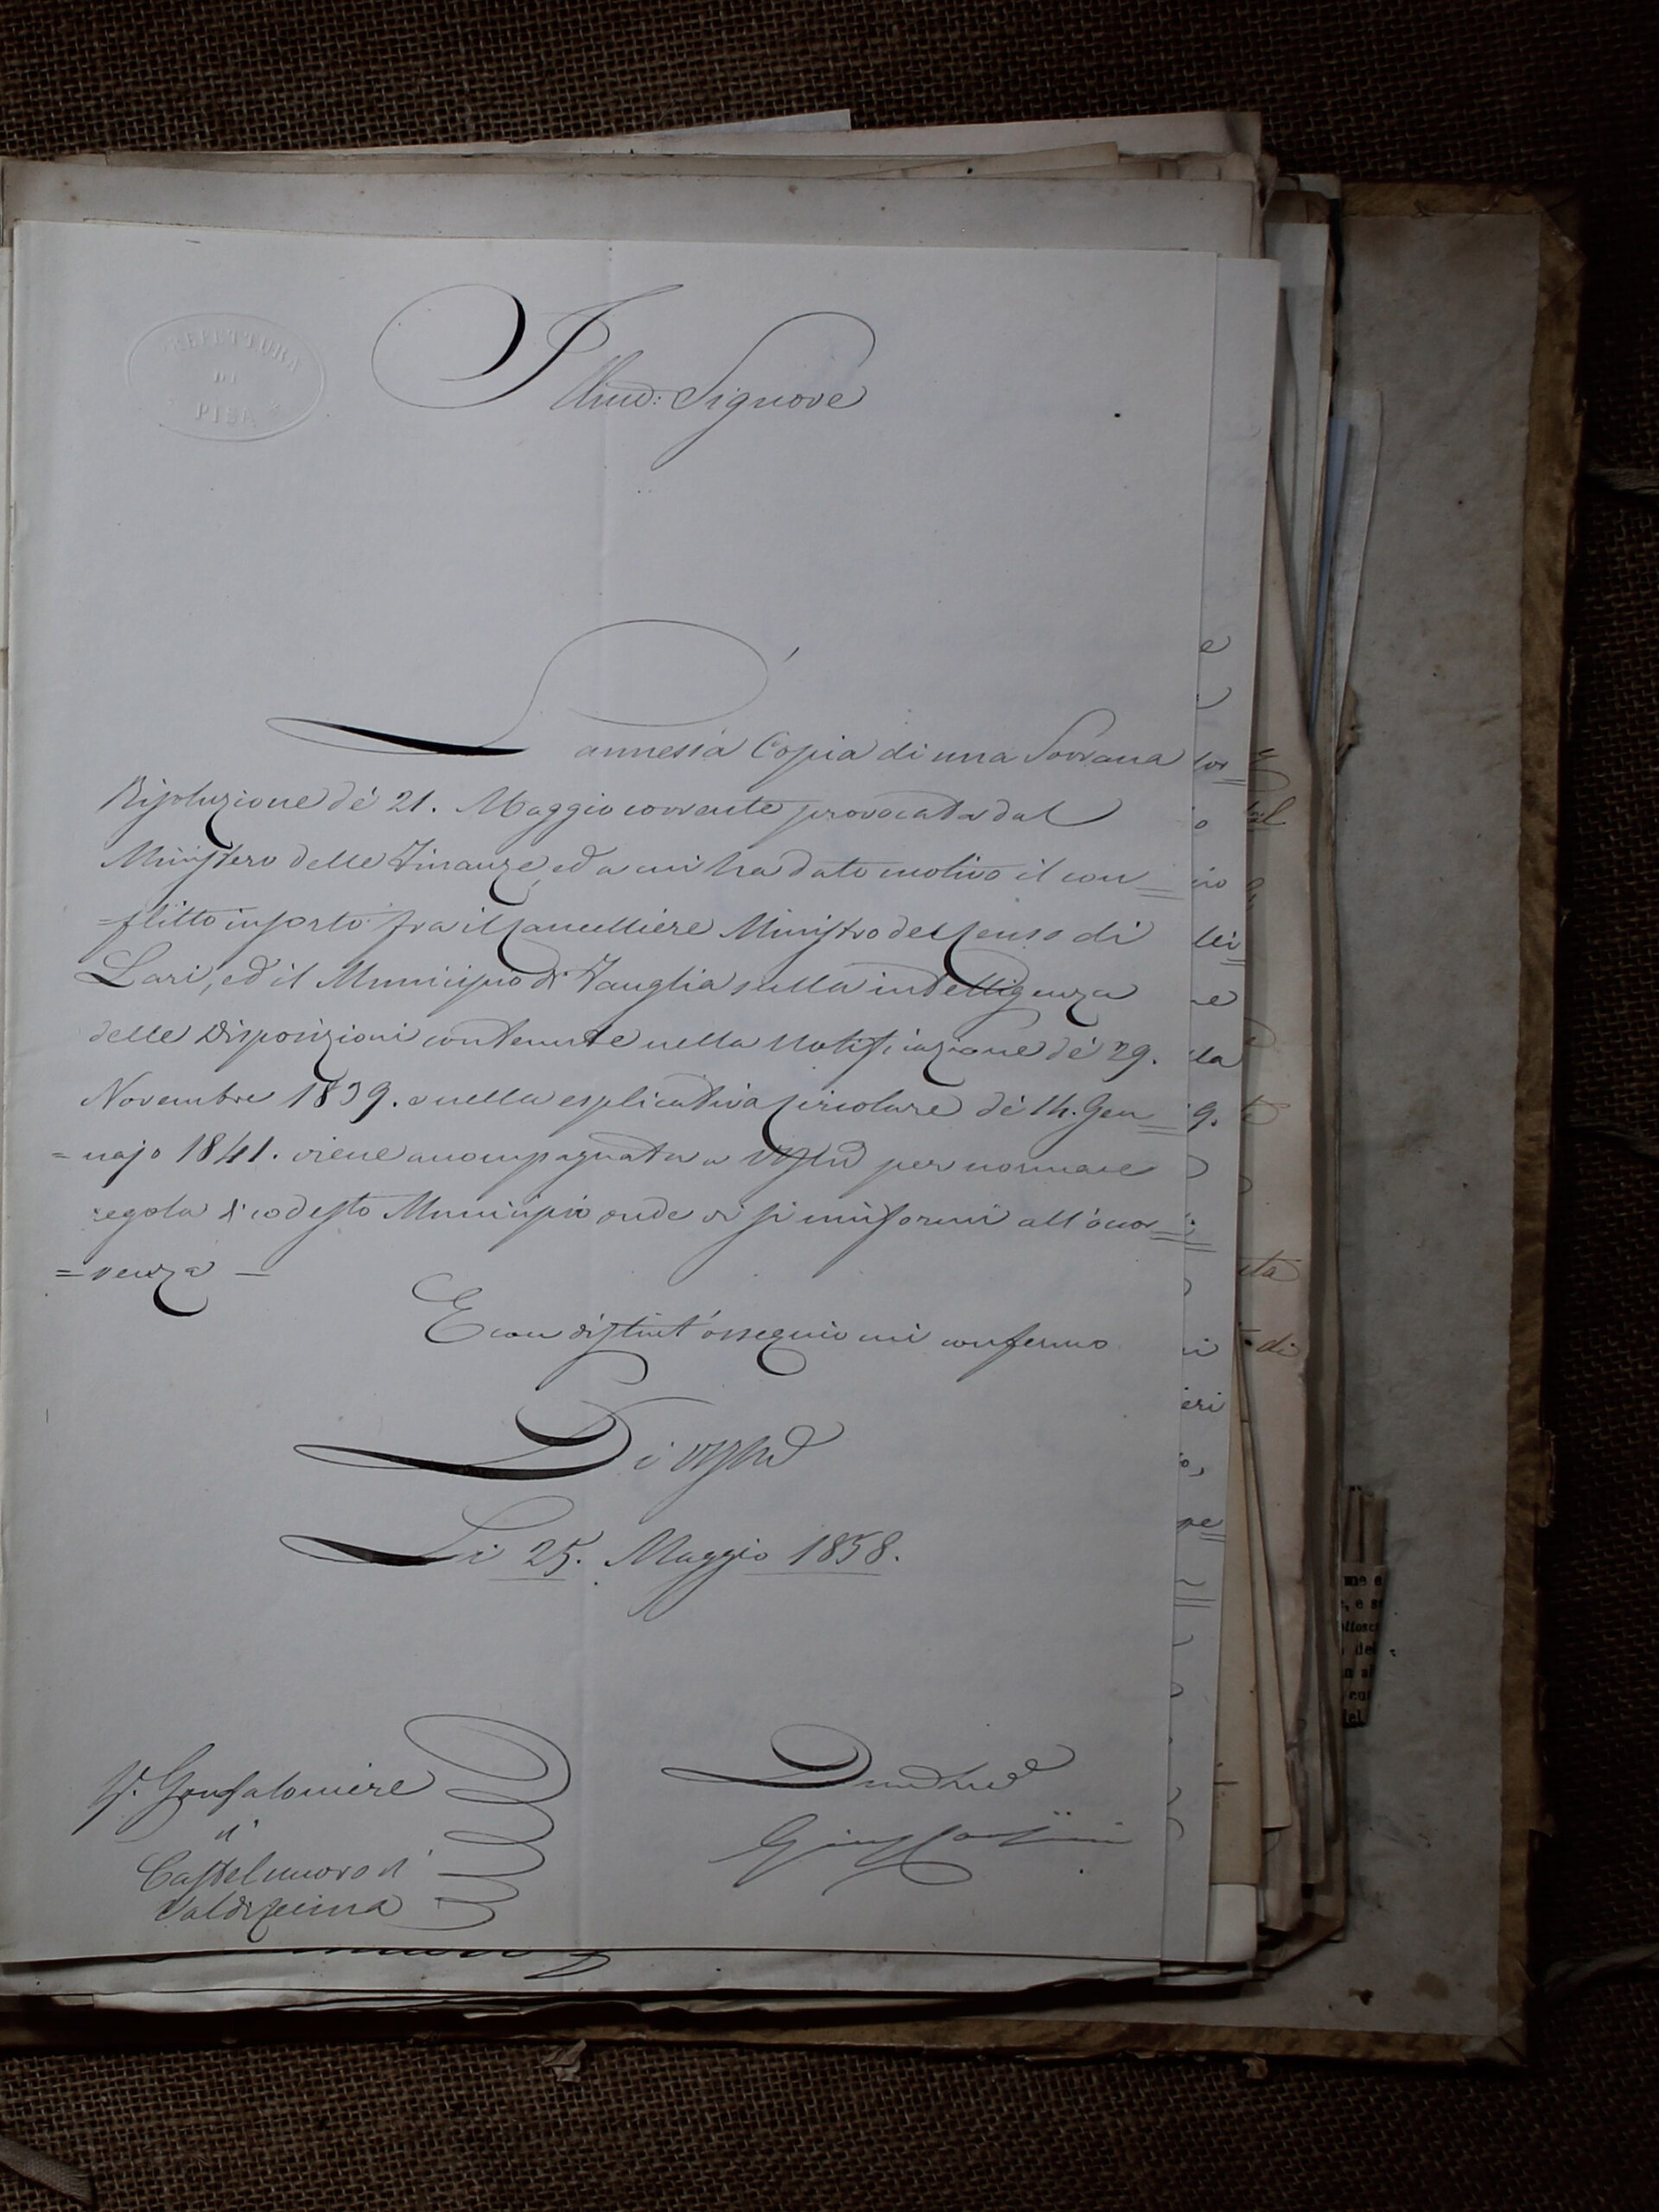 PREFETTURA
DI
PISA
Illmo: Signore
L'annessa Copia di una Sovrana
Risoluzione de' 21. Maggio corrente provocata dal
Ministero delle Finanze, ed a cui ha dato motivo il con=
=flitto insorto fra il Cancelliere Ministro del Censo di
Lari, ed il Municipio di Fauglia sulla intelligenza
delle Disposizioni contenute nella Notificazione de' 29.
Novembre 1839. e nella esplicativa Circolare de' 14. Gen=
=najo 1841. viene accompagnata a VSIllma per normale
regola di codesto Municipio onde vi si uniformi all'occor=
=renza =
E con distint'ossequio mi confermo
Di VSIllma
Li 25. Maggio 1858.
Sr. Gonfaloniere
di
Castelnuovo di
Valdicecina